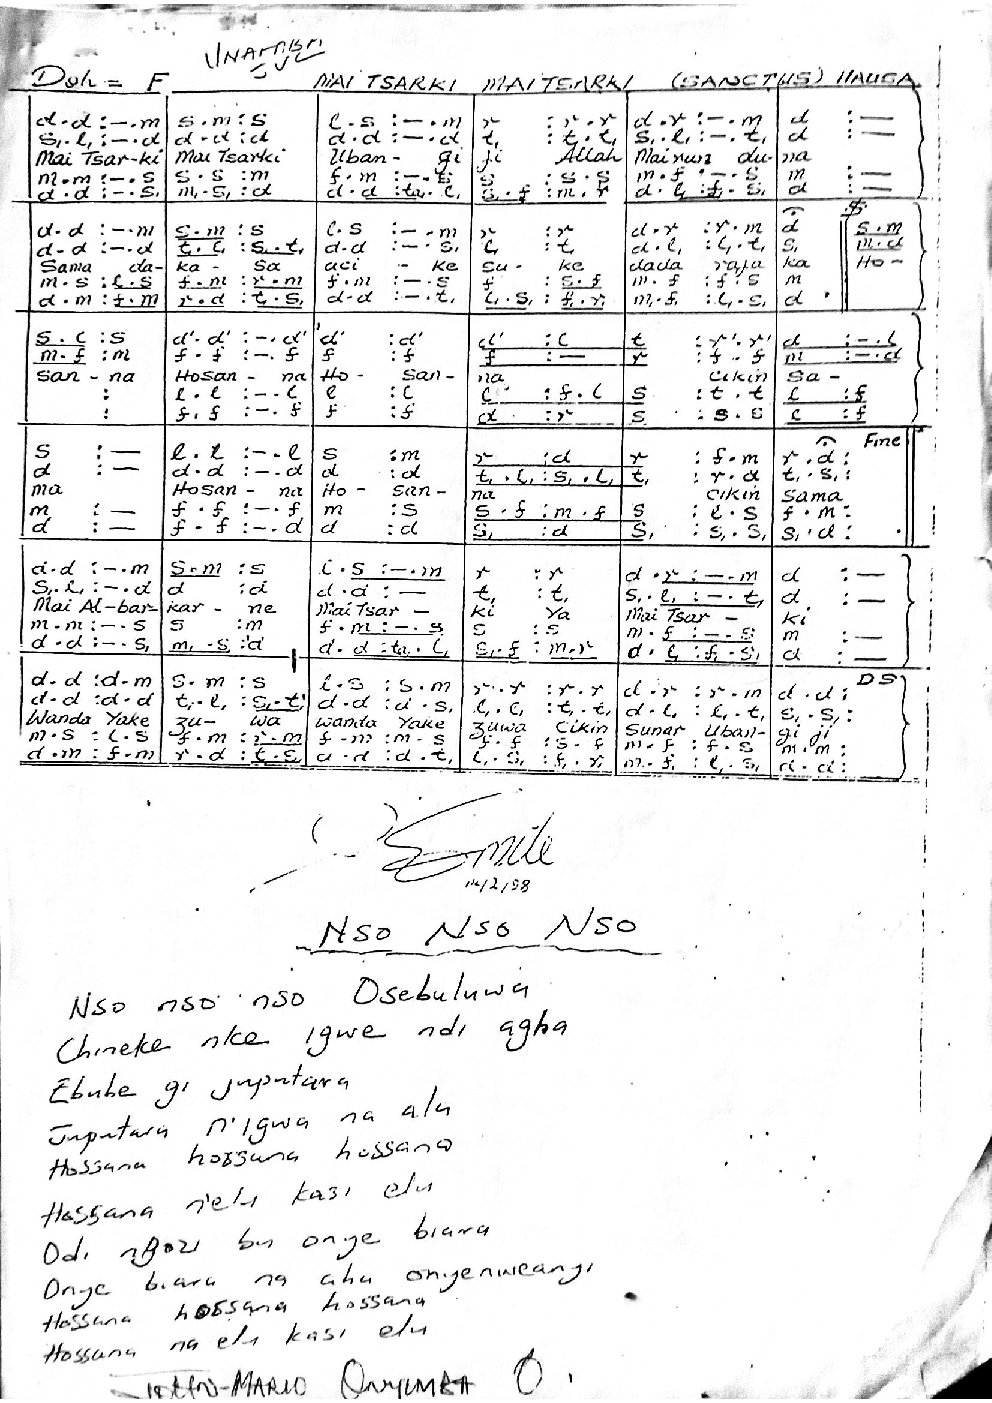 UNAMBM
Doh = F MAI TSARKI MAI TSARKI (SANCTUS) HAUSA
d.d :-.m | s.m :s | l.s :-.m | r :r.r | d.r :-.m | d :—
s,.l, :-.d | d.d :d | d.d :-.d | t, :t,.t, | s,.l, :-.t, | d :—
Mai Tsar-ki | Mai Tsarki | Uban - gi | ji Allah | Mai nun du- | na
m.m :-.s | s.s :m | f.m :-.s | s :s.s | m.f :-.s | m :—
d.d :-.s, | m,.s, :d | d.d :ta,.l, | s,.f :m.r | d.l, :f,.s, | d :—
d.d :-.m | s.m :s | l.s :-.m | r :r | d.r :r.m | d | s.m
d.d :-.d | t,.l, :s,.t, | d.d :-.s, | l, :t, | d.l, :l,.t, | s, | m.d
Sama da- | ka - sa | aci - ke | su - ke | dada raja | ka | Ho-
m.s :l.s | f.m :r.m | f.m :-.s | f :s.f | m.f :f.s | m
d.m :f.m | r.d :t,.s, | d.d :-.t, | l,.s, :f,.r, | m,.f, :l,.s, | d
s.l :s | d'.d' :-.d' | d' :d' | d' :l | t :r'.r' | d :-.l
m.f :m | f.f :-.f | f :f | f :— | r :f.f | m :-.d
san - na | Hosan - na | Ho - san- | na | cikin | sa -
: | l.l :-.l | l :l | l :f.l | s :t.t | l :f
: | f.f :-.f | f :f | d :r | s :s.s | l :f
s :— | l.l :-.l | s :m | r :d | r :f.m | r.d : Fine
d :— | d.d :-.d | d :d | t,.l, :s,.l, | t, :r.d | t,.s, :
ma | Hosan - na | Ho - san- | na | cikin | sama
m :— | f.f :-.f | m :s | s.f :m.f | s :l.s | f.m :
d :— | f.f :-.d | d :d | s, :d | s, :s,.s, | s,.d :
d.d :-.m | s.m :s | l.s :-.m | r :r | d.r :-.m | d :—
s,.l, :-.d | d :d | d.d :— | t, :t, | s,.l, :-.t, | d :—
Mai Al-bar- | kar - ne | Mai Tsar - | ki Ya | Mai Tsar - | ki
m.m :-.s | s :m | f.m :-.s | s :s | m.f :-.s | m :—
d.d :-.s, | m,.s, :d | d.d :ta,.l, | s,.f :m.r | d.l, :f,.s, | d :—
d.d :d.m | s.m :s | l.s :s.m | r.r :r.r | d.r :r.m | d.d : DS
d.d :d.d | t,.l, :s,.t, | d.d :d.s, | l,.l, :t,.t, | d.l, :l,.t, | s,.s, :
Wanda Yake | zu - wa | wanda Yake | zuwa Cikin | sunar Uban- | gi ji
m.s :l.s | f.m :r.m | f.m :m.s | f.f :s.f | m.f :f.s | m.m :
d.m :f.m | r.d :t,.s, | d.d :d.t, | l,.s, :f,.r, | m,.f, :l,.s, | d.d :
14/2/98
NSO NSO NSO
Nso nso nso Osebuluwa
Chineke nke igwe ndi agha
Ebube gi juputara
Juputara n'igwa na alu
Hossana hossana hossana
Hossana n'elu kasi elu
Odi ngozi bu onye biara
Onye biara na aha onyenweanyi
Hossana hossana hossana
Hossana na elu kasi elu